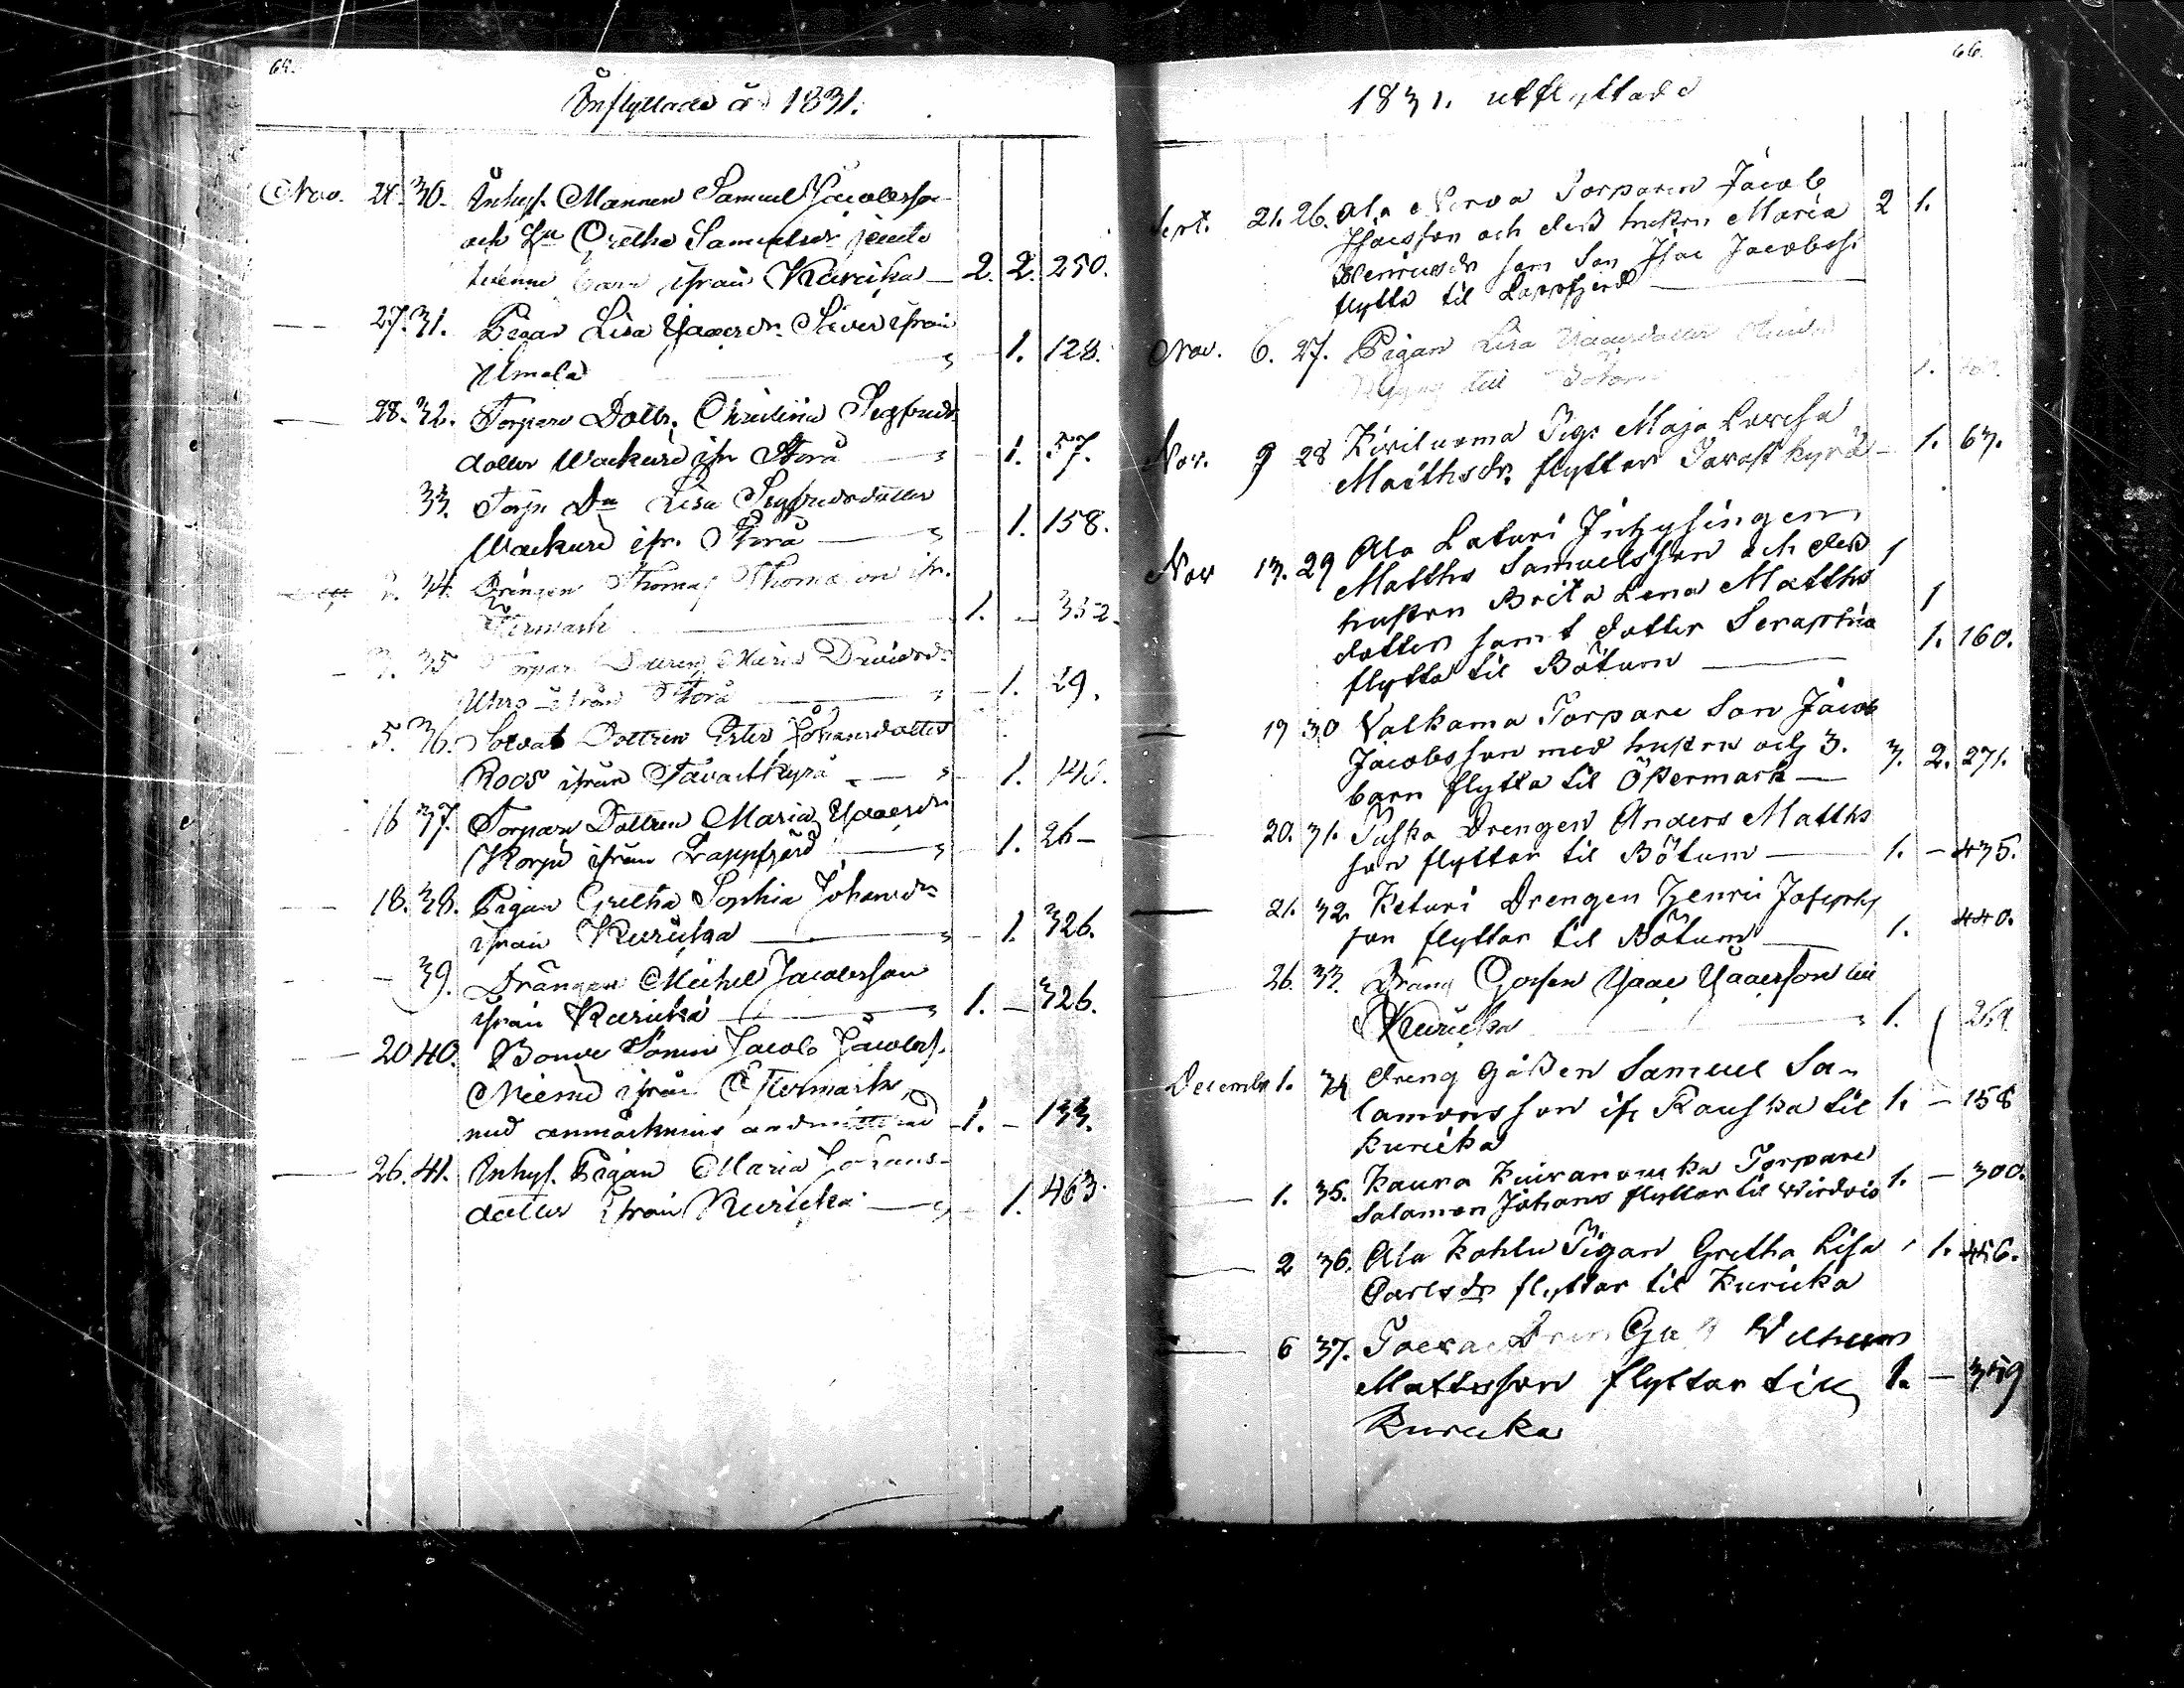 Inflyttade år 1831.
Nov. 24. 30. Inhys. Mannen Samuel Jacobsson
och Hu Gretha Samuelsdr jemte
tvenne barn ifrån Kuricka — 2. 2. 250.
— 27. 31. Pigan Lisa Isaacsdr ifrån
Ilmola 1. 128.
— 28. 32. Torpare Dottr. Christina Sigfrids
dotter Wackuri ifr Storå — 1. 57.
33. Torp. Lisa Sigfridsdotter
Wackuri ifr. Storå — 1. 158.
34. Drängen Thomas Thomasson ifr.
1. — 352.
3. 35 Torpare Maria Davidsdr
ifrån Storå — 1. 29.
5. 36. Soldat Dottren Johansdotter
Roos ifrån Tavastkyrö — 1.
16 37. Torpare Dottren Maria Isaacsdr
Korpi ifrån Lappfjerd — 1. 26 —
— 18. 38. Pigan Gretha Sophia Johansdr
ifrån Kuricka — 1. 326.
— 39. Drängen Michel Jacobsson
ifrån Kuricka — 1. — 326.
— 20 40. Bonde Sonen Jacob Jacobss.
ifrån Östermark,
med anmärkning 1. — 133.
— 26. 41. Inhys. Pigan Maria Johans-
dotter ifrån Kuricka — 1. 463.
66.
1831. utflyttade
Sept. 21. 26. Ala Torparen Jacob
Isacsson och dess hustru Maria 2 1.
Henricsdr son Isac Jacobss.
flytta til Lappfjerd —
Nov. 6. 27. Pigan Lisa Isaacsdotter
till Bötom 1.
Nov. 9 28 Kiviluoma Pig. Maja Lovisa
Matthsdr. flyttar Tavastkyrö — 1. 67.
Nov 13. 29 Ala Laturi Inhysingen
Matths Samuelsson och dess 1
hustru Brita Lena Matths 1
dotter samt dotter Seraphia 1. 160.
flytta til Bötom —
— 19 30 Valkama Torpare Son Jacob
Jacobsson med hustru och 3. 3. 2. 271.
barn flytta til Östermark —
— 20. 31. Drengen Anders Matths
son flyttar til Bötum — 1. — 435.
— 21. 32. Keturi Drengen Henric Josephs
son flyttar til Bötum — 1. 440.
— 26. 33. Dräng Gossen Isaac Isaacsson till
Kuricka 1.
December 1. 34 dreng gåssen Samuel Sa-
lamonsson ifr Rauska til 1. — 158
Kuricka
— 1. 35. Kaura Torpare
Salamon Johans flyttar til Wirdois 1. — 300.
— 2 36. Ala Kohlu Pigan Gretha Lisa 1. 456.
Carlsdr flyttar til Kuricka
— 6 37. Wilhelm
Mattsson flyttar till 1. — 359
Kuricka